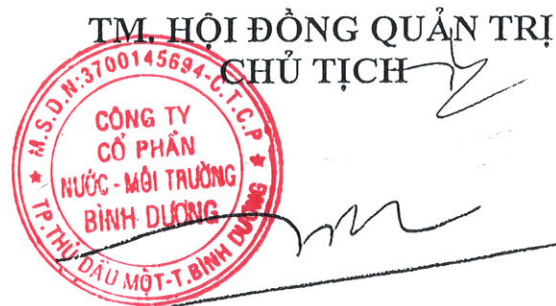 TM. HỘI ĐỒNG QUẢN TRỊ
CHỦ TỊCH
M.S.D.N:3700145694-C.T.C.P
CÔNG TY
CỔ PHẦN
NƯỚC - MÔI TRƯỜNG
BÌNH DƯƠNG
TP.THỦ DẦU MỘT-T.BÌNH DƯƠNG